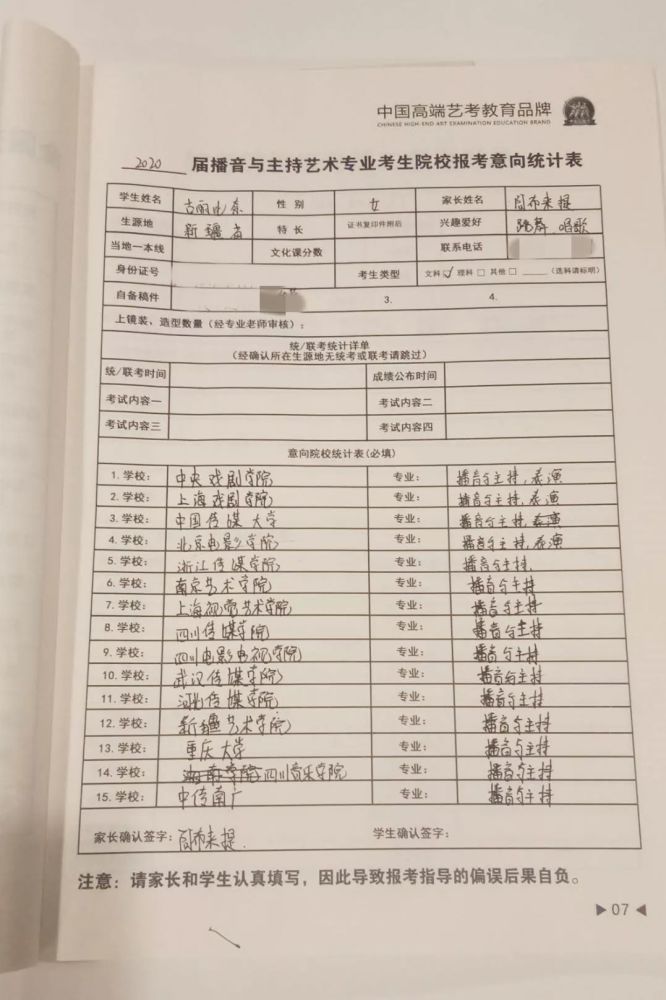 中国高端艺考教育品牌
CHINESE HIGH-END ART EXAMINATION EDUCATION BRAND
2020 届播音与主持艺术专业考生院校报考意向统计表
学生姓名 性 别 女 家长姓名 阿布来提
生源地 新疆省 特 长 证书复印件附后 兴趣爱好 跳舞 唱歌
当地一本线 文化课分数 联系电话
身份证号 考生类型 文科☑ 理科□ 其他□ ______(选科请标明)
自备稿件 3. 4.
上镜装、造型数量(经专业老师审核):
统/联考统计详单
(经确认所在生源地无统考或联考请跳过)
统/联考时间 成绩公布时间
考试内容一 考试内容二
考试内容三 考试内容四
意向院校统计表(必填)
1.学校: 中央戏剧学院 专业: 播音与主持,表演
2.学校: 上海戏剧学院 专业: 播音与主持,表演
3.学校: 中国传媒大学 专业: 播音与主持,表演
4.学校: 北京电影学院 专业: 播音与主持,表演
5.学校: 浙江传媒学院 专业: 播音与主持.
6.学校: 南京艺术学院 专业: 播音与主持
7.学校: 上海视觉艺术学院 专业: 播音与主持
8.学校: 四川传媒学院 专业: 播音与主持
9.学校: 四川电影电视学院 专业: 播音与主持
10.学校: 武汉传媒学院 专业: 播音与主持
11.学校: 河北传媒学院 专业: 播音与主持
12.学校: 新疆艺术学院 专业: 播音与主持
13.学校: 重庆大学 专业: 播音与主持
14.学校: 四川音乐学院 专业: 播音与主持
15.学校: 中传南广 专业: 播音与主持
家长确认签字: 阿布来提 学生确认签字:
注意:请家长和学生认真填写,因此导致报考指导的偏误后果自负。
▶07◀